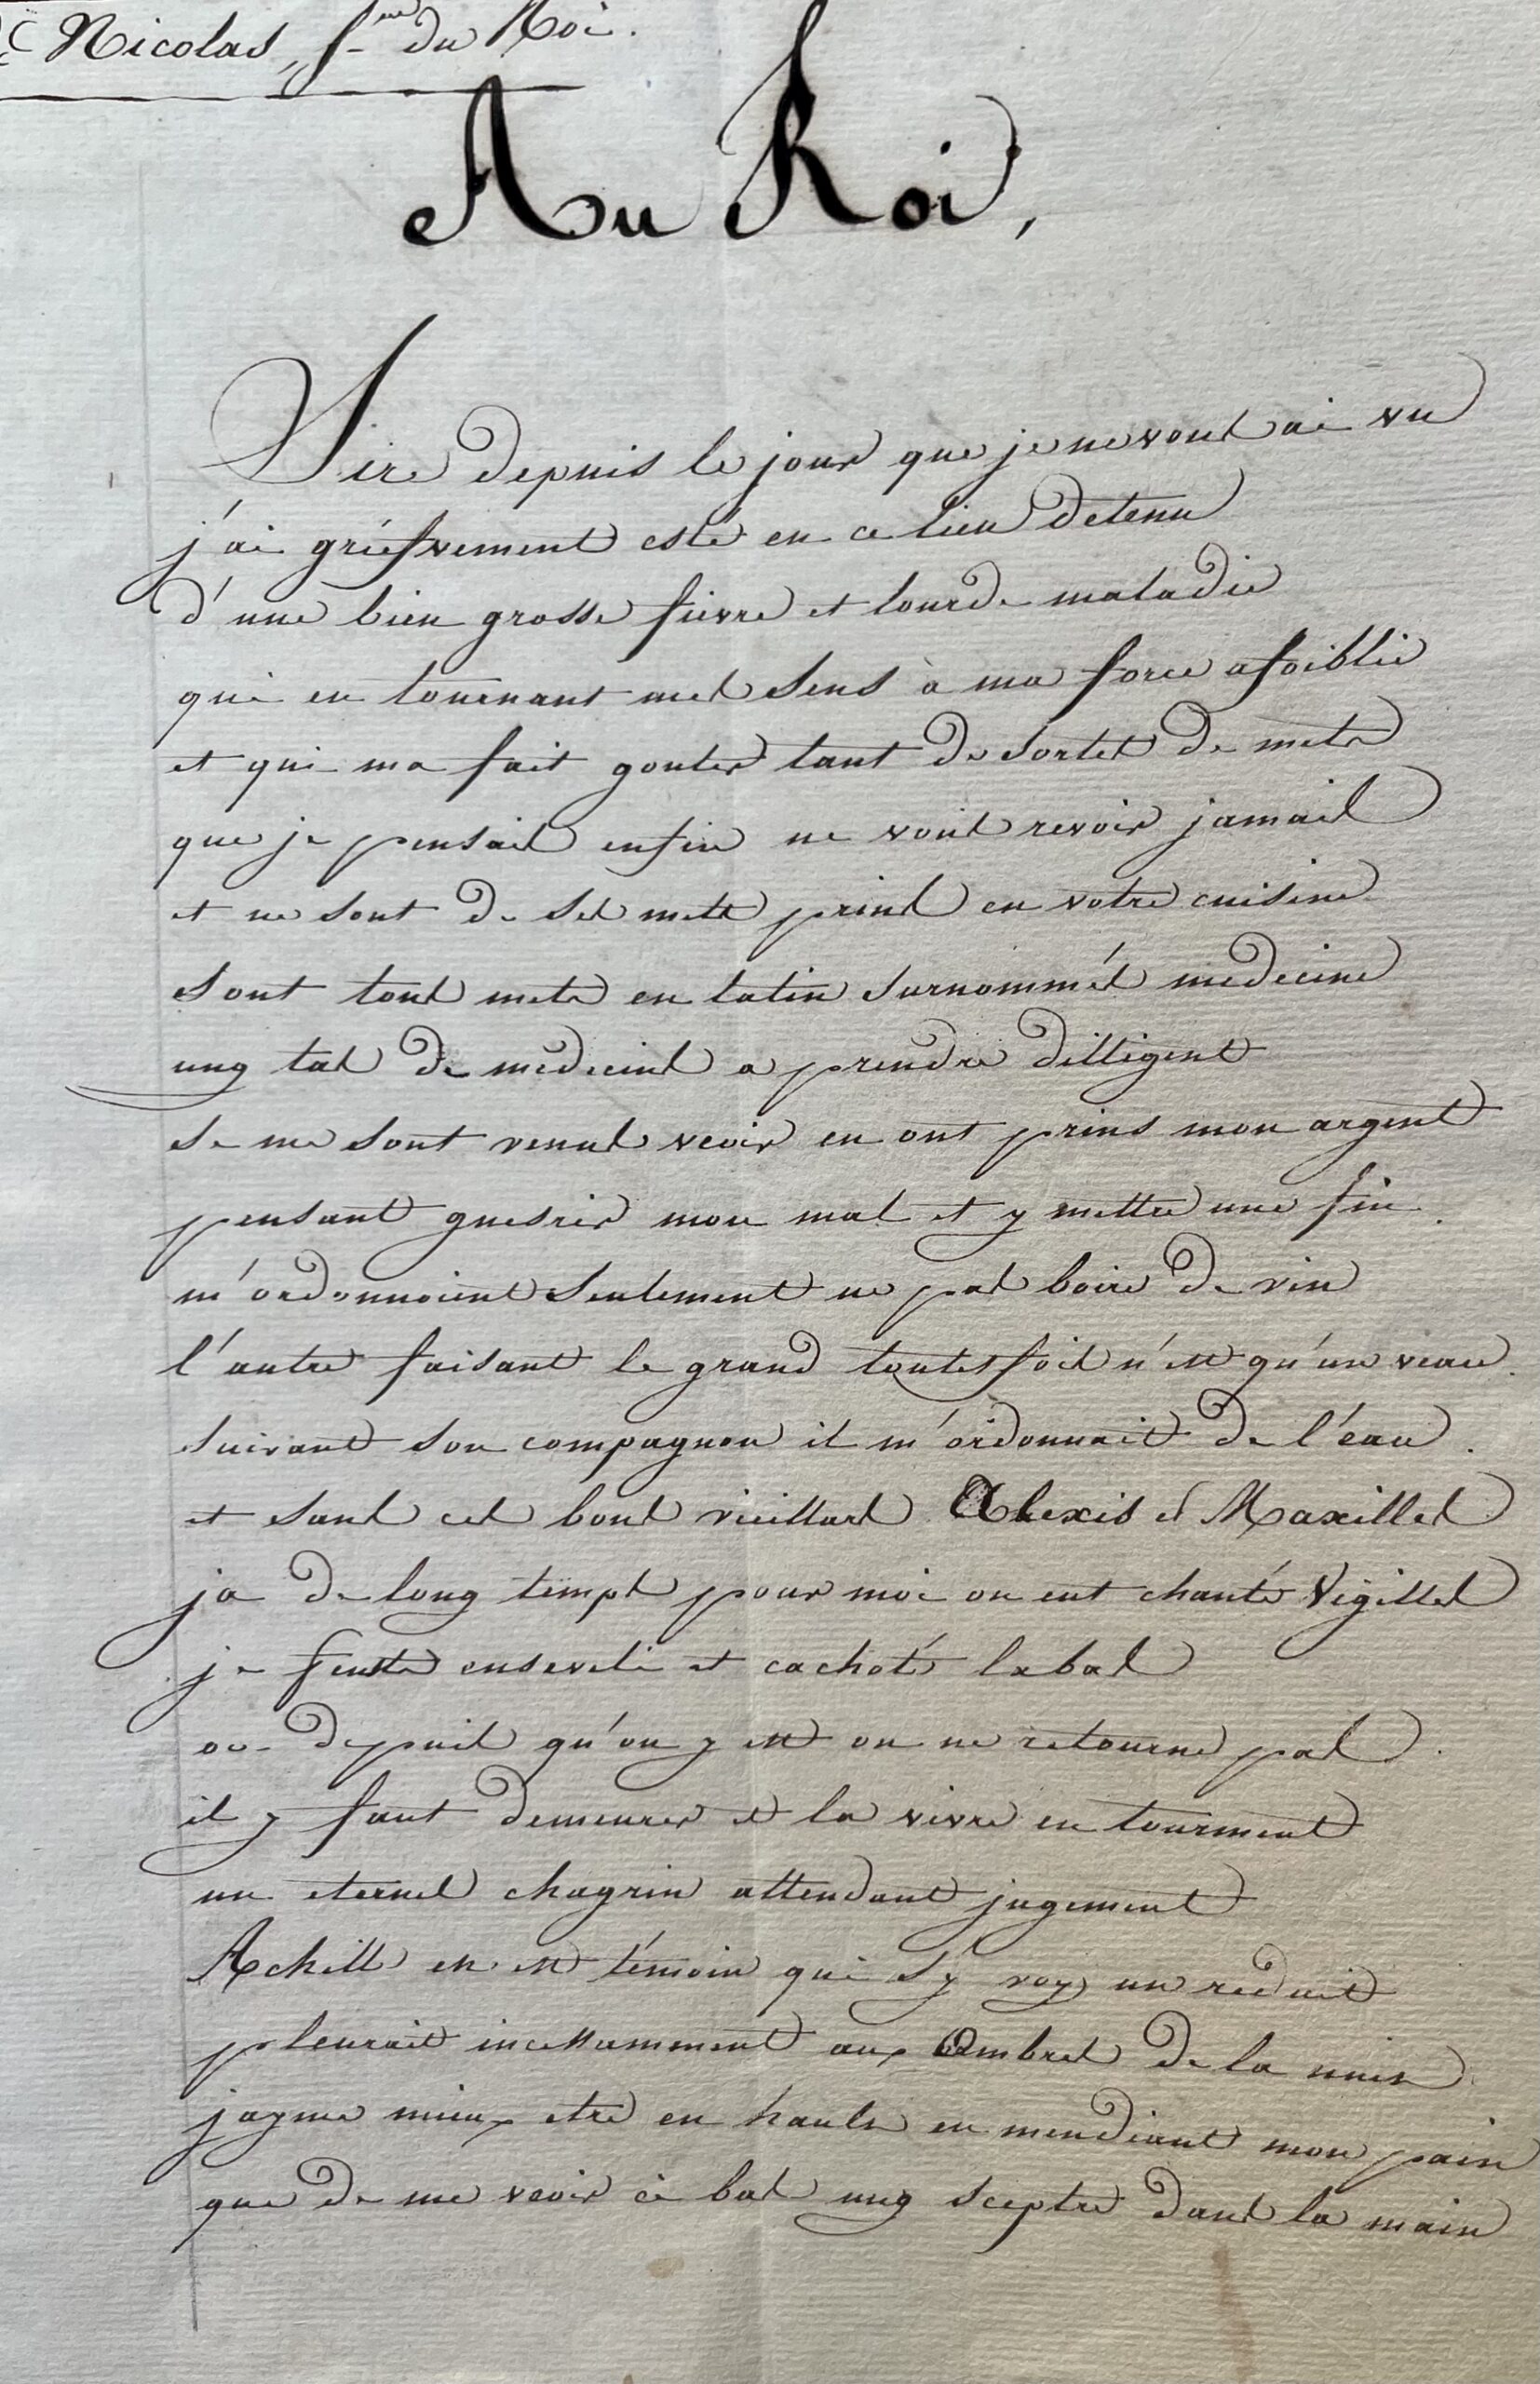 Nicolas, s.re du Roi.
Au Roi,
Sire depuis le jour que je ne vous ai vu
j'ai griéfvement esté en ce lieu detenu
d'une bien grosse fievre et lourde maladie
qui en tournant mes sens à ma force afoiblie
et qui ma fait gouter tant de sortes de mets
que je pensais enfin ne vous revoir jamais
et ne sont de ses mets prins en votre cuisine
sont tous mets en latin surnommés medecine
ung tas de medecins a prendre dilligent
se me sont venus veoir en ont prins mon argent
pensant guesrir mon mal et y mettre une fin
m'ordonnoient seulement ne pas boire de vin
l'autre faisant le grand toutesfois n'est qu'un veau
suivant son compagnon il m'ordonnait de l'éau
et sans ces bons vieillars Alexis et Maxilles
ja de long temps pour moi on eut chanté Vigilles
je feusse enseveli et cachoté labas
ou depuis qu'on y est on ne retourne pas
il y faut demeurer et la vivre en tourment
un eternel chagrin attendant jugement
Achille en est témoin qui s'y voy un reduit
pleurait incessamment aux Ombres de la nuis
jayme mieux etre en hault en mendiant mon pain
que de me veoir ci bas ung sceptre dans la main